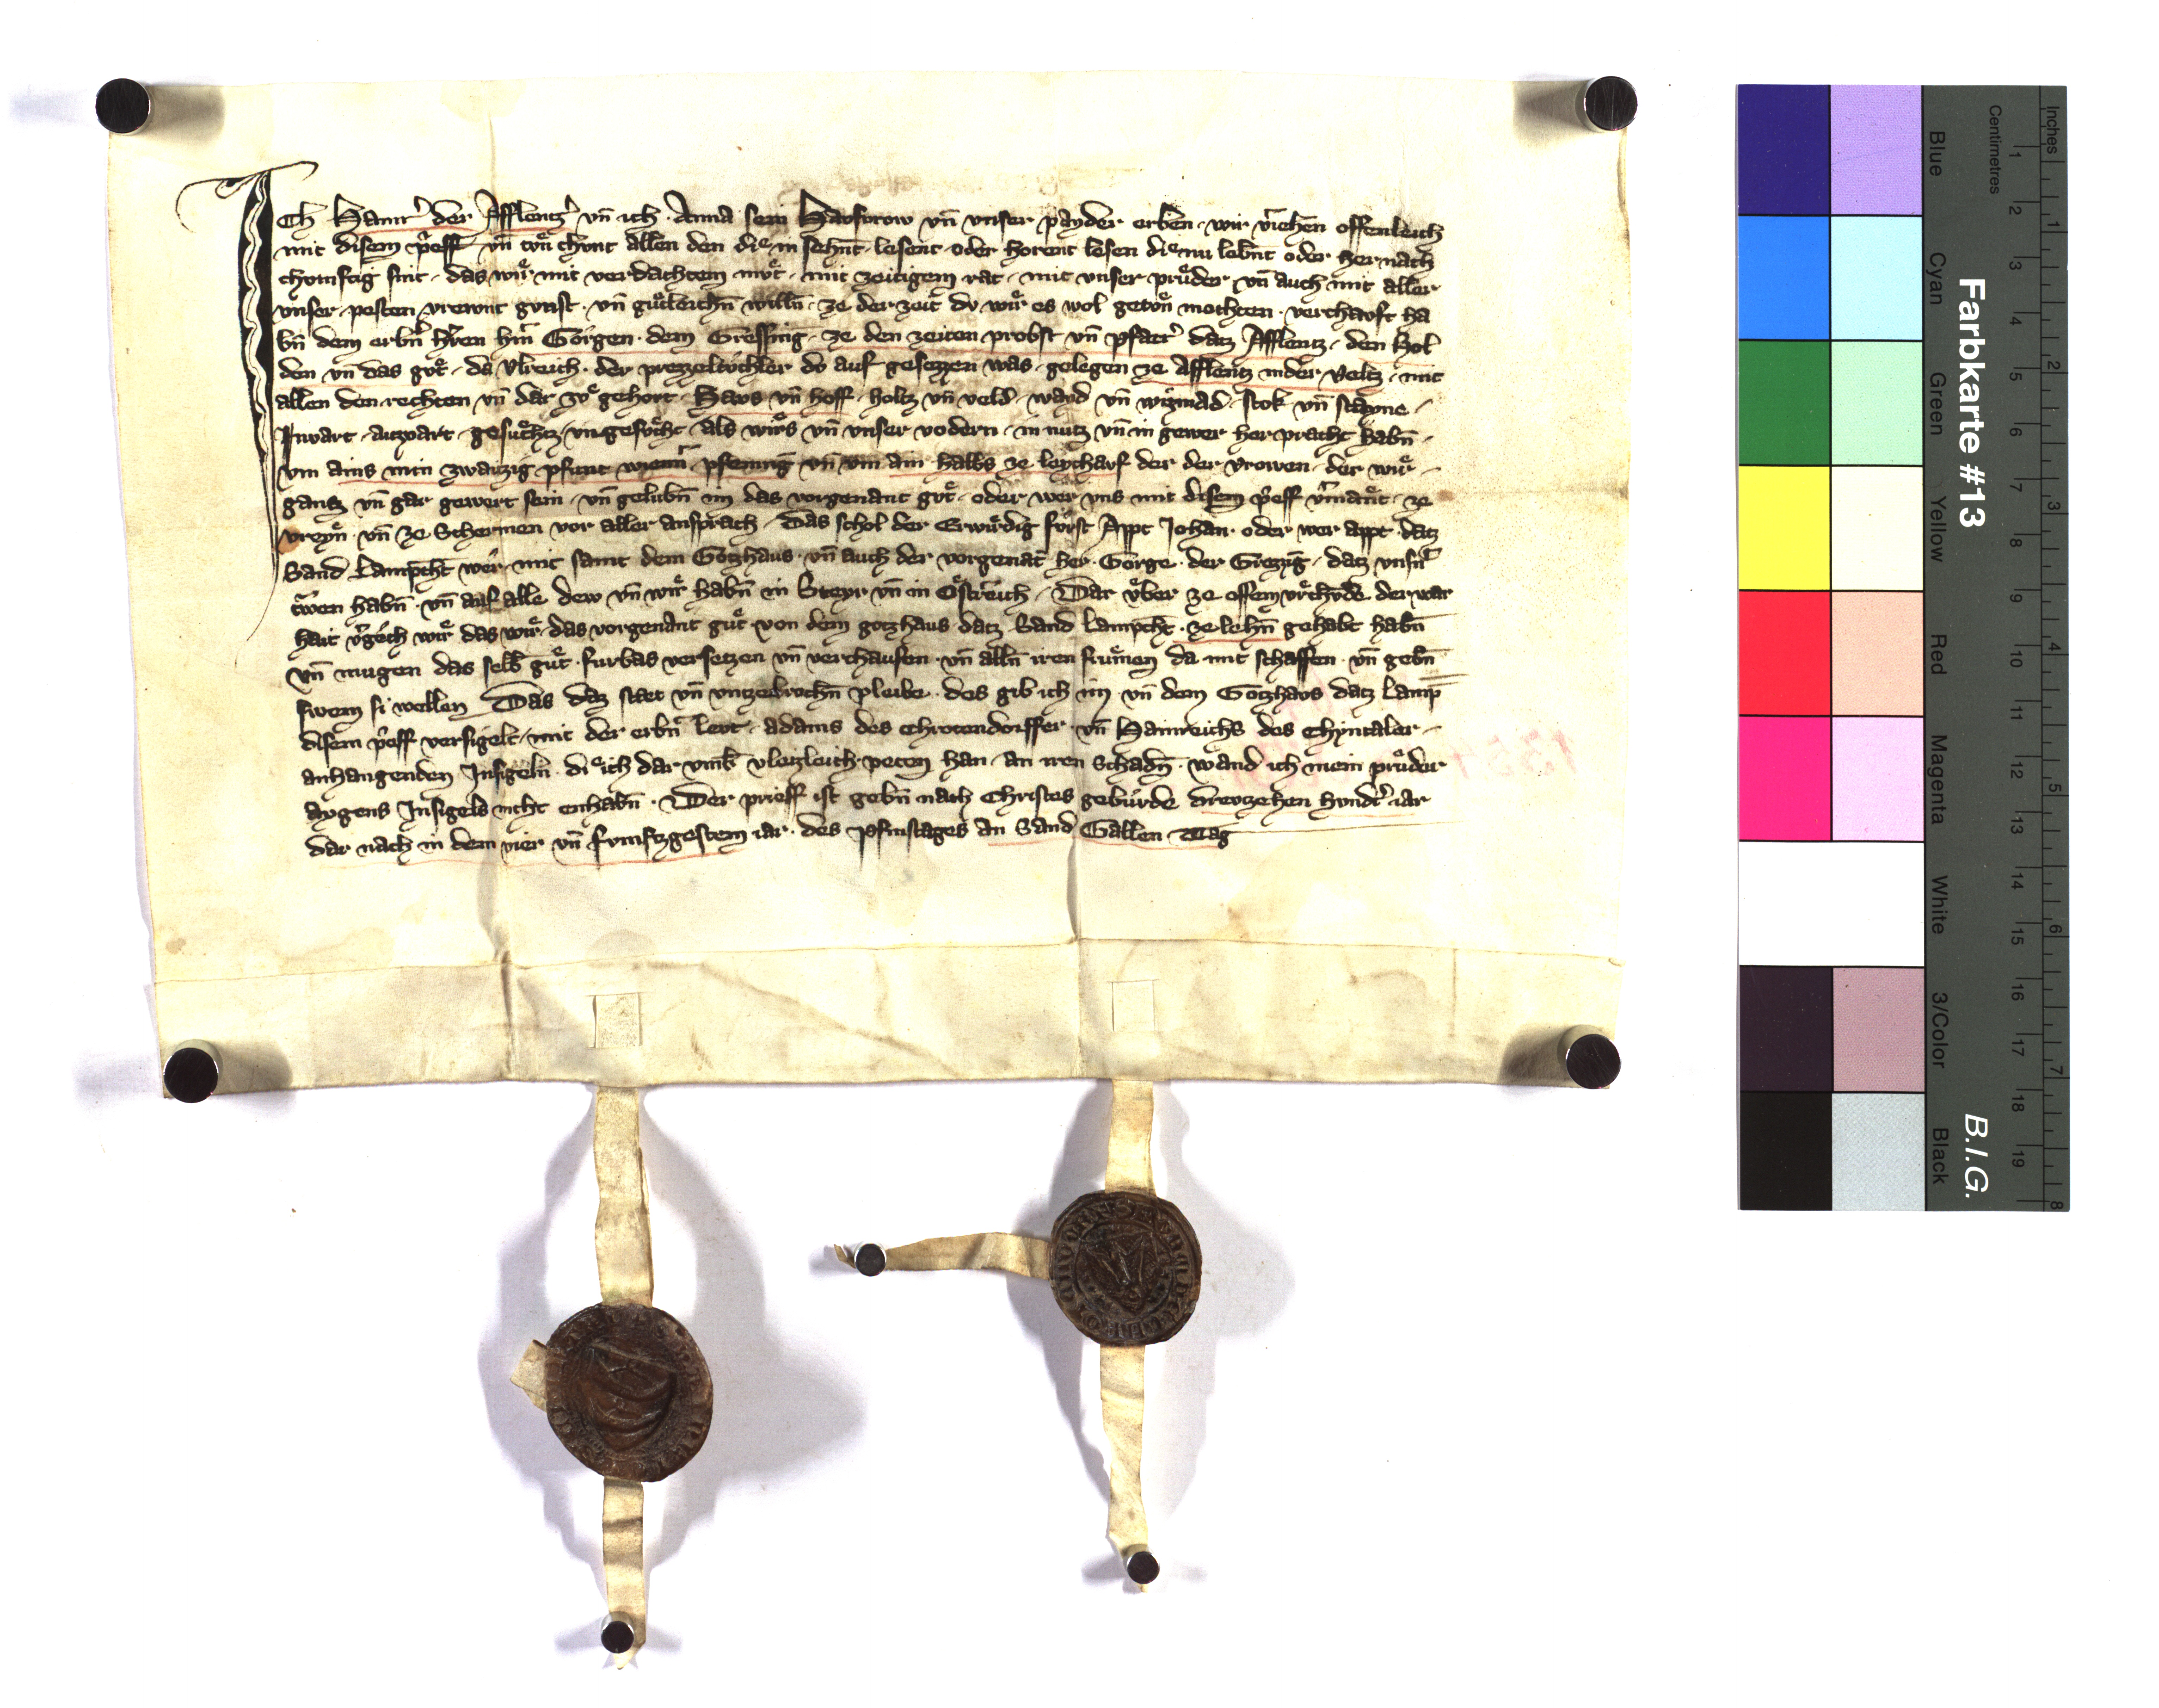 Ich Hainr̉ der Afflentzer vn̄ ich Anna sein Havsvrow vn̄ vnser payder erben wir v̉iehen offenleich
mit disem p̉eff vn̄ tvͦn chvnt allen den die in sehnt lesent oder horent lesen die nu lebnt oder her nach
chomftig sint das wir mit verdachtem mvͦt mit zeitigem rat mit vnser prüder vn̄ auch mit aller
vnser pesten vrewnt gvnst vn̄ gütleichn̄ willn̄ ze der zeit do wir es wol getvͦn mochten verchavft ha
bn̄ dem erbn̄ h̉ren h̉rn Görgen dem Gressing ze den zeiten probst vn̄ pfarr̉ datz Afflentz den Hol
den vn̄ das gvͦt da Vlreich der prezzeltöchler do auf gesezzen was gelegen ze Afflentz in der Veltz mit
allen den rechten vn̄ dar zvͦ gehort Havs vn̄ hoff holtz vn̄ veld wayd vn̄ wismad stok vn̄ stayne
Invart auzvart gesuͦchtz vngesuͦcht als wirs vn̄ vnser vodern in nutz vn̄ in gewer her pracht habn̄
vm ains min zwaizig pfunt wienn̉ pfennig vn̄ vm ain halbs ze leychavf der der vrowen der wir
gantz vn̄ gar gewert sein vn̄ gelubn̄ im das vorgenant gvͦt oder wer vns mit disem p̉eff v̉mant ze
vreyn vn̄ ze Schermen vor aller ansprach Das schol der Erwirdig fürst Appt Johan oder wer appt datz
Sand Lamp̉cht wer mit samt dem Gotzhaus vn̄ auch der vorgenāt her Görge der Grezzig datz vnsn̉
trwen habn̄ vn̄ auf alle dew vn̄ wir habn̄ in Steyr vn̄ in Östreich Dar vͤber ze offem vrchvͤde der war
hait v̉gech wir das wir das vorgenant guͦt von dem gotzhaus datz Sand Lampcht ze lehn̄ gehabt habn̄
vn̄ mugen das selb guͦt furbas versetzen vn̄ verchaufen vn̄ alln̄ iren frumen da mit schaffen vn̄ gebn̄
swem si wellen Das daz stat vn̄ vntzebrochn̄ pleibe des gib ich im vn̄ dem Gotzhavs datz Lamp
disem p̉eff versigelt mit der erbn̄ levt adams des Chrotendorffer vn̄ Hainreichs des Chyntaler
anhangenden Insigeln die ich dar vmb vleizleich peten han an iren Schadn̄ wand ich mein prüder
aygens Insigels nicht enhabn̄ Der prieff ist gebn̄ nach Christes gebürde drevzehen hvndt̉ iar
dar nach in dem vier vn̄ fvmftzgestem iar des Pfinstages an Sand Gallen Tag
Farbkarte #13
B.I.G.
Inches
Centimetres
1 2 3 4 5 6 7 8
1 2 3 4 5 6 7 8 9 10 11 12 13 14 15 16 17 18 19
Blue
Cyan
Green
Yellow
Red
Magenta
White
3/Color
Black